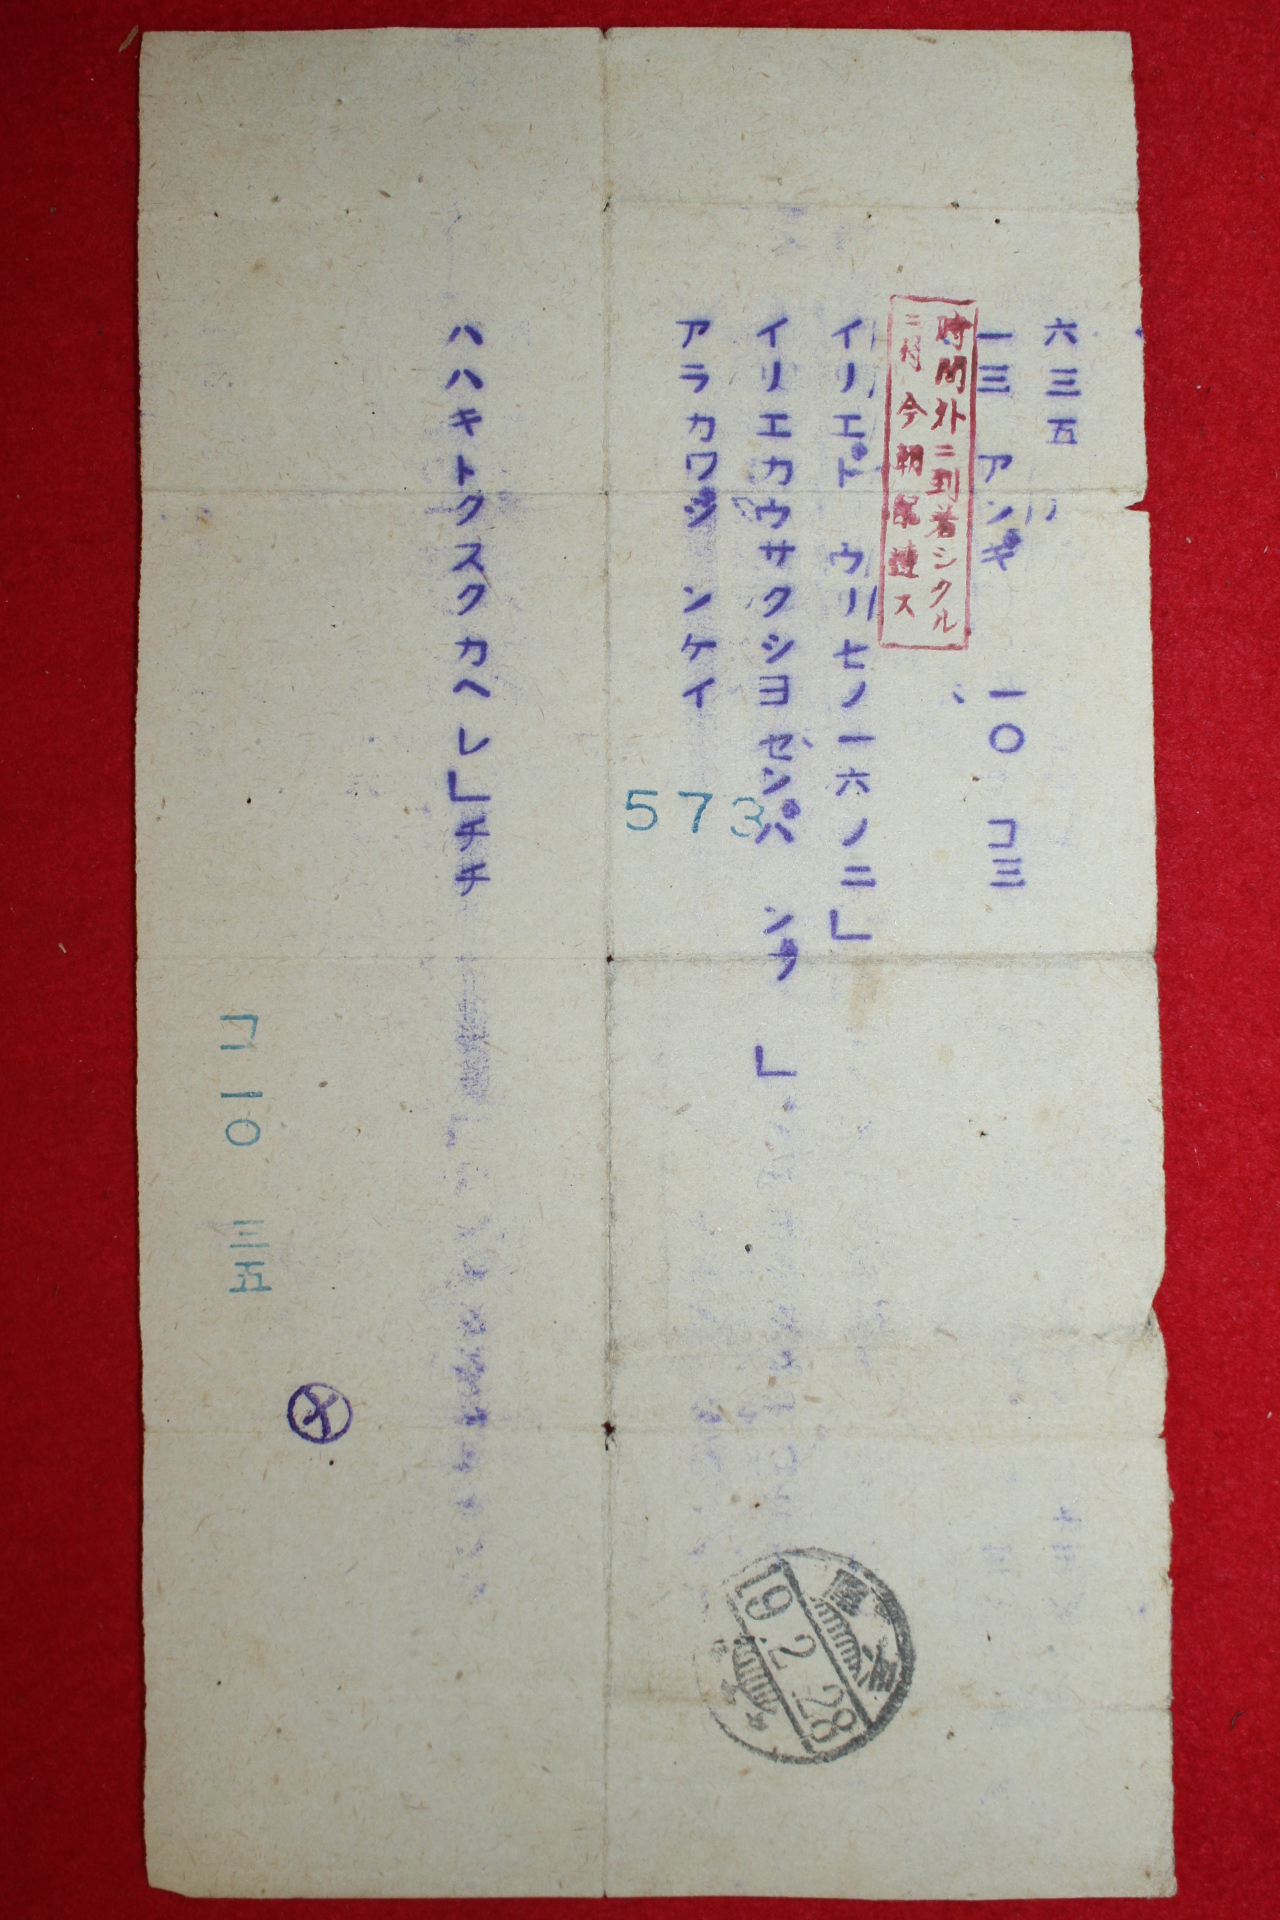 六三五
一三 アンギ 一〇 コ三
時間外ニ到着シタル
今朝配達ス
イリエド ウリ七ノ一六ノ二」
イリエカウサクシヨゼンバ ンヅ 」
アラカワジ ンケイ
573
ハハキトクスクカヘレ」チチ
コ 一〇 三五
19.2.28